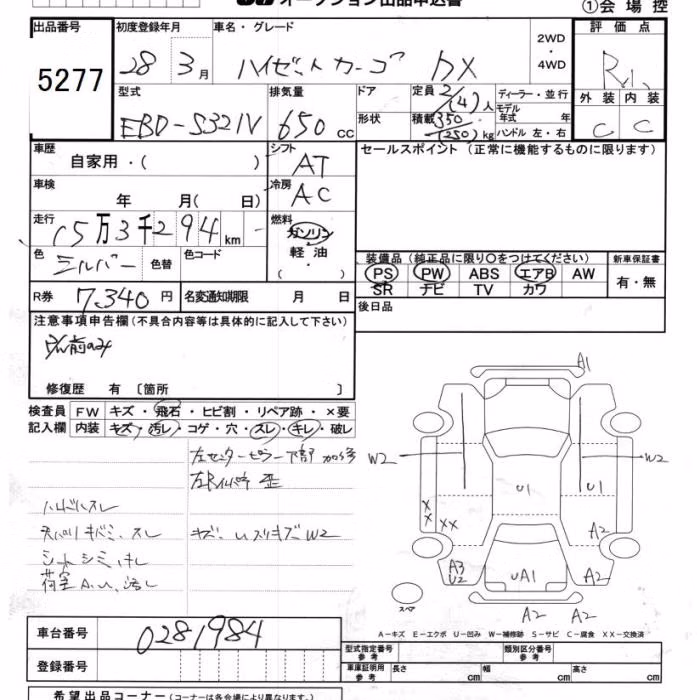 オークション出品申込書
①会場控
出品番号 初度登録年月 車名・グレード 2WD・4WD 評価点
5277 28年 3月 ハイゼットカーゴ DX R
型式 排気量 ドア 定員 2/(4)人 ディーラー・並行 外装 内装
EBD-S321V 650cc 形状 積載 350/(250)kg モデル年式 年 ハンドル 左・右 C C
車歴 シフト セールスポイント (正常に機能するものに限ります)
自家用・( ) AT
車検 冷房
年 月( 日) AC
走行 燃料
15万3千294km ガソリン
色 色替 色コード 軽油
シルバー ( ・ )
装備品(純正品に限り〇をつけてください) 新車保証書
PS PW ABS エアB AW 有・無
SR ナビ TV カワ
R券 7,340円 名変通知期限 月 日
後日品
注意事項申告欄(不具合内容等は具体的に記入して下さい)
修復歴 有 〔箇所 〕
検査員 FW キズ・飛石・ヒビ割・リペア跡・×要
記入欄 内装 キズ・汚レ・コゲ・穴・スレ・キレ・破レ
左センターピラー下部
ハンドルスレ
キズ W2
シート シミ キレ
荷室
A1
W2 W2
U1 U1
X
X
XX
A2
A3
U2
UA1
A2
スペア
A2 A2
A-キズ E-エクボ U-凹み W-補修跡 S-サビ C-腐食 XX-交換済
車台番号 0281984
登録番号
型式指定番号 参考 類別区分番号 参考
車庫証明用 参考 長さ cm 幅 cm 高さ cm
希望出品コーナー(コーナーは各会場により異なります。)